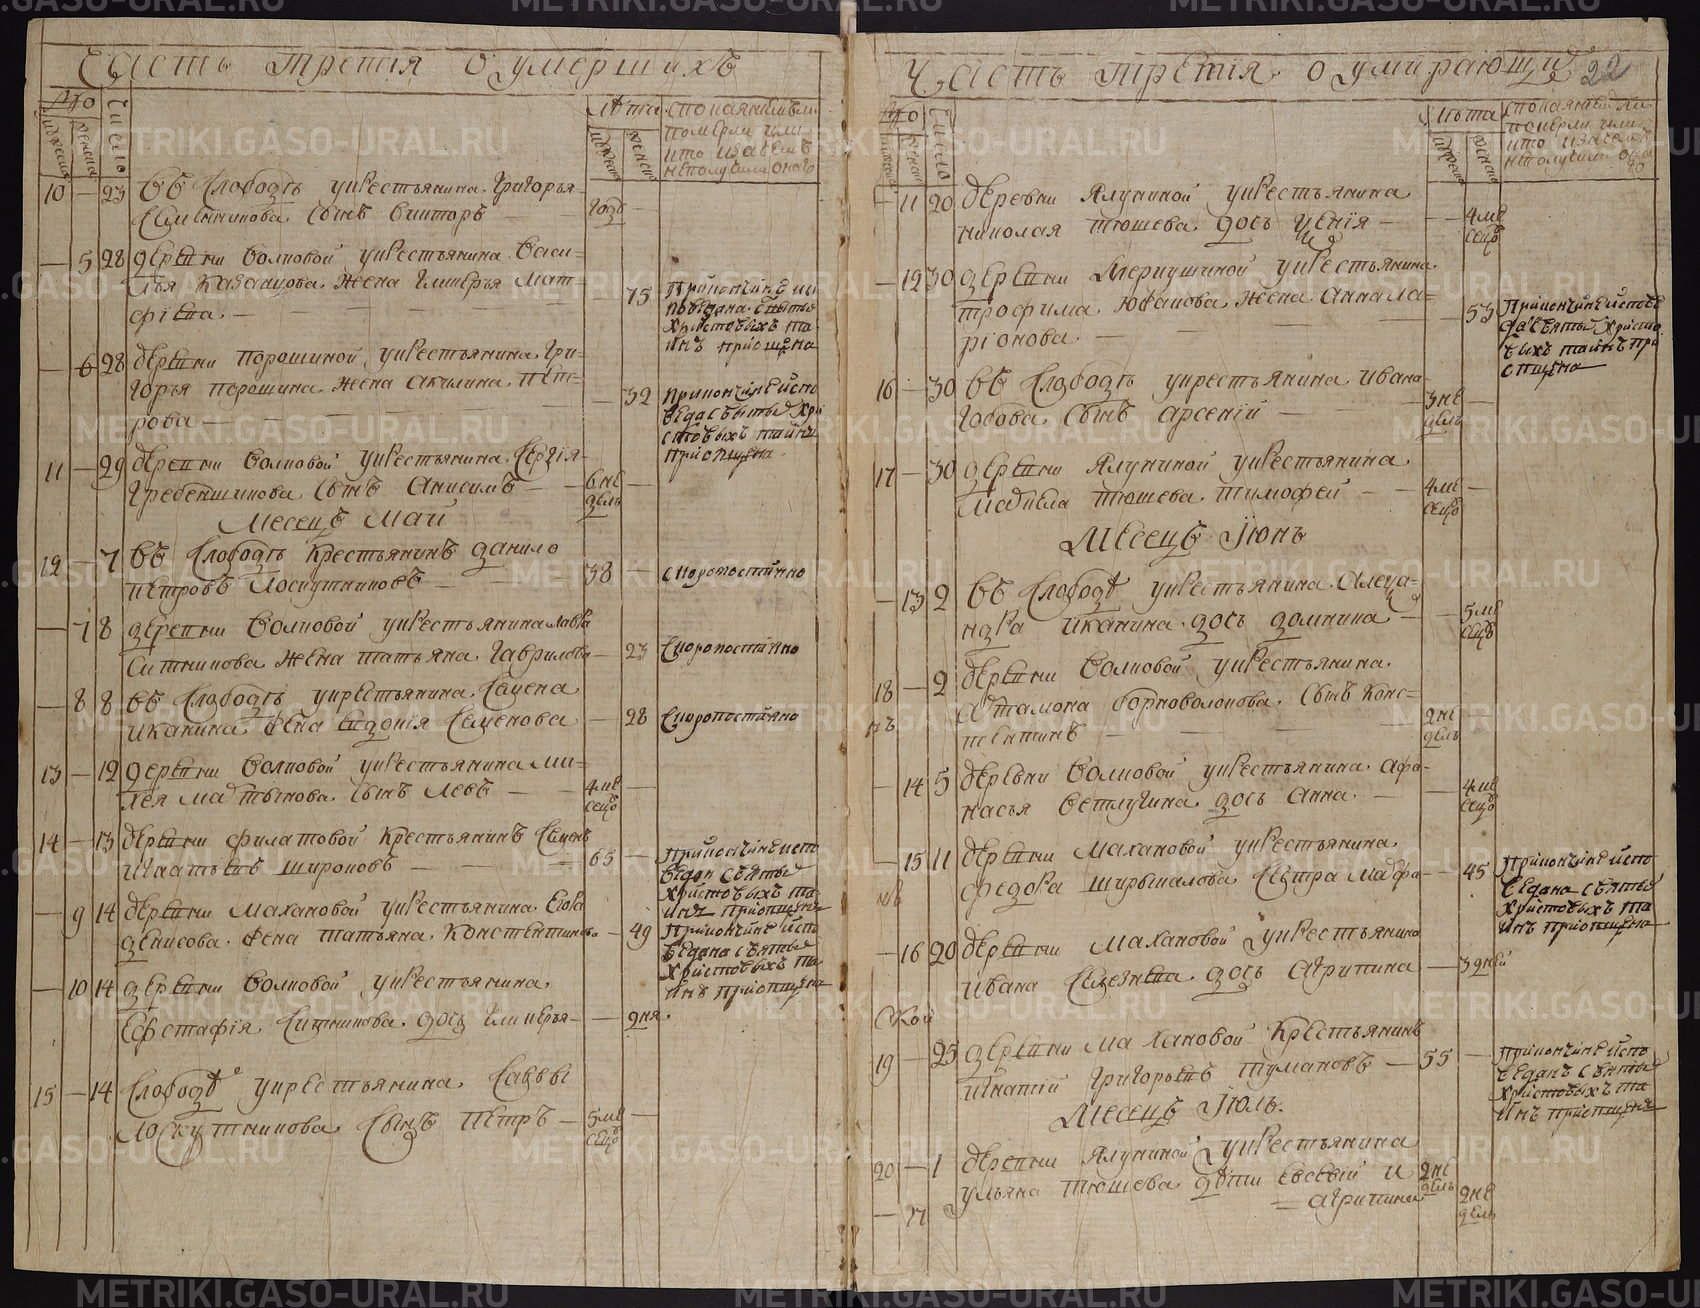 Часть третія о умершихъ
Число
Лѣта
10 — 23 въ Слободѣ у крестьянина Григорья
сынъ Викторъ — — годъ —
— 5 28 деревни Волковой у крестьянина Васи-
лья Казанцова жена Гликерья Мат-
фіева — — — 75
При кончинѣ ис
поведана святы
Христовыхъ та
инъ приобщена
— 6 28 деревни Порошиной у крестьянина Гри-
горья Порошина жена Акилина Пет-
рова — — 32
При кончинѣ испо
ведана святы Хри
стовыхъ тайнъ
приобщена
11 — 29 деревни Волковой у крестьянина Сергія
Гребенщикова сынъ Анисимъ — 6 не
дель —
Месецъ Май
12 — 7 въ Слободѣ крестьянинъ Данило
Петровъ Лоскутниковъ — 38 — скоропостижно
— 7 8 деревни Волковой у крестьянина Лавра
Ситникова жена Татьяна Гаврилова — 23 скоропостижно
— 8 8 въ Слободѣ у крестьянина Семена
Иканина жена Семенова — 28 скоропостижно
13 — 12 деревни Волковой у крестьянина Ми-
хея Мартынова сынъ Левъ — 4 ме
сецъ —
14 — 13 деревни Филатовой крестьянинъ Семенъ
Игнатьевъ Широковъ — 65 —
При кончинѣ испо
веданъ святы
Христовыхъ та
инъ приобщенъ
— 9 14 деревни Махановой у крестьянина
Денисова жена Татьяна Константинова — 49
При кончинѣ испо
ведана святы
Христовыхъ та
инъ приобщена
— 10 14 деревни Волковой у крестьянина
Ефстафія Ситникова дочь Гликерья — 2 дня
15 — 14 Слободѣ у крестьянина Саввы
Лоскутникова сынъ Петръ — 5 ме
сецъ —
Часть третія о умирающи 22
Число
Лѣта
— 11 20 деревни Ялуниной у крестьянина
Николая Тюшева дочь — — 4 ме
сецъ
— 12 30 деревни Меркушиной у крестьянина
Трофима жена Анна Ла-
ріонова — — 53
При кончинѣ испове
дана святы Христо
выхъ тайнъ при
общена
16 — 30 въ Слободѣ у крестьянина Ивана
сынъ Арсеній — 3 не
дель —
17 — 30 деревни Ялуниной у крестьянина
Тюшева Тимофей — 4 ме
сецъ —
Месецъ Іюнь
— 13 2 въ Слободѣ у крестьянина Алекса-
ндра Иканина дочь Домника — — 5 ме
сецъ
18 — 2 деревни Волковой у крестьянина
Артамона Чорноволокова сынъ Конс-
тентинъ — 2 не
дель —
— 14 5 деревни Волковой у крестьянина Афа-
насья Ветлугина дочь Анна — — 4 ме
сецъ
— 15 11 деревни Махановой у крестьянина
Федора Ширыкалова сестра Марфа — 45
При кончинѣ испо
ведана святы
Христовыхъ та
инъ приобщена
— 16 20 деревни Махановой у крестьянина
Ивана дочь Агрипина — 3 дней
19 — 25 деревни Махановой крестьянинъ
Игнатій Григорьевъ Тумановъ — 55 —
При кончинѣ испо
веданъ святы
Христовыхъ та
инъ приобщенъ
Месецъ Іюль
20 — 1 деревни Ялуниной у крестьянина
Ульяна Тюшева дѣти Евсевій и 2 не
дель
— 17 = Агрипина 2 не
дель
METRIKI.GASO-URAL.RU